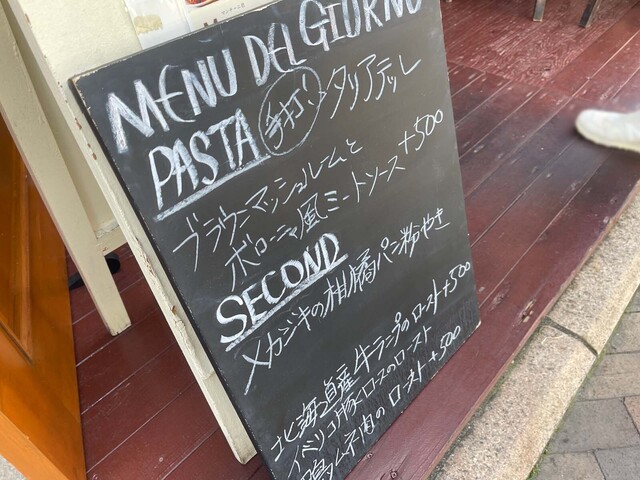 MENU DEL GIORNO
PASTA 手打ち タリアテッレ
ブラウンマッシュルームと
ボローニャ風ミートソース +500
SECOND
メカジキの柑橘パン粉やき
北海道産牛ランプのロースト +500
イベリコ豚ロースのロースト
鴨ムネ肉のロースト +500